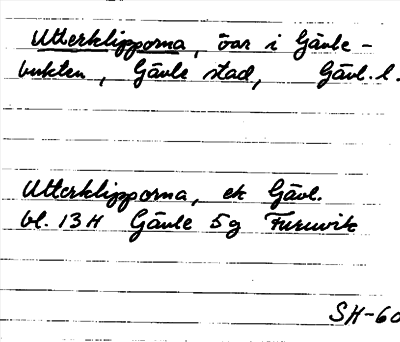 Utterklipporna, öar i Gävle-
bukten, Gävle stad, Gävl. l.
Utterklipporna, ek Gävl.
bl. 13H Gävle 5g Furuvik
SH-60